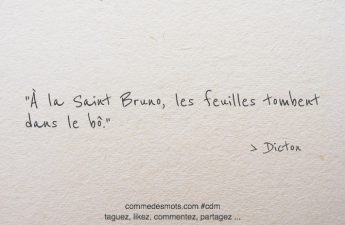 "À la Saint Bruno, les feuilles tombent
dans le bô."
> Dicton
commedesmots.com #cdm
taguez, likez, commentez, partagez ...